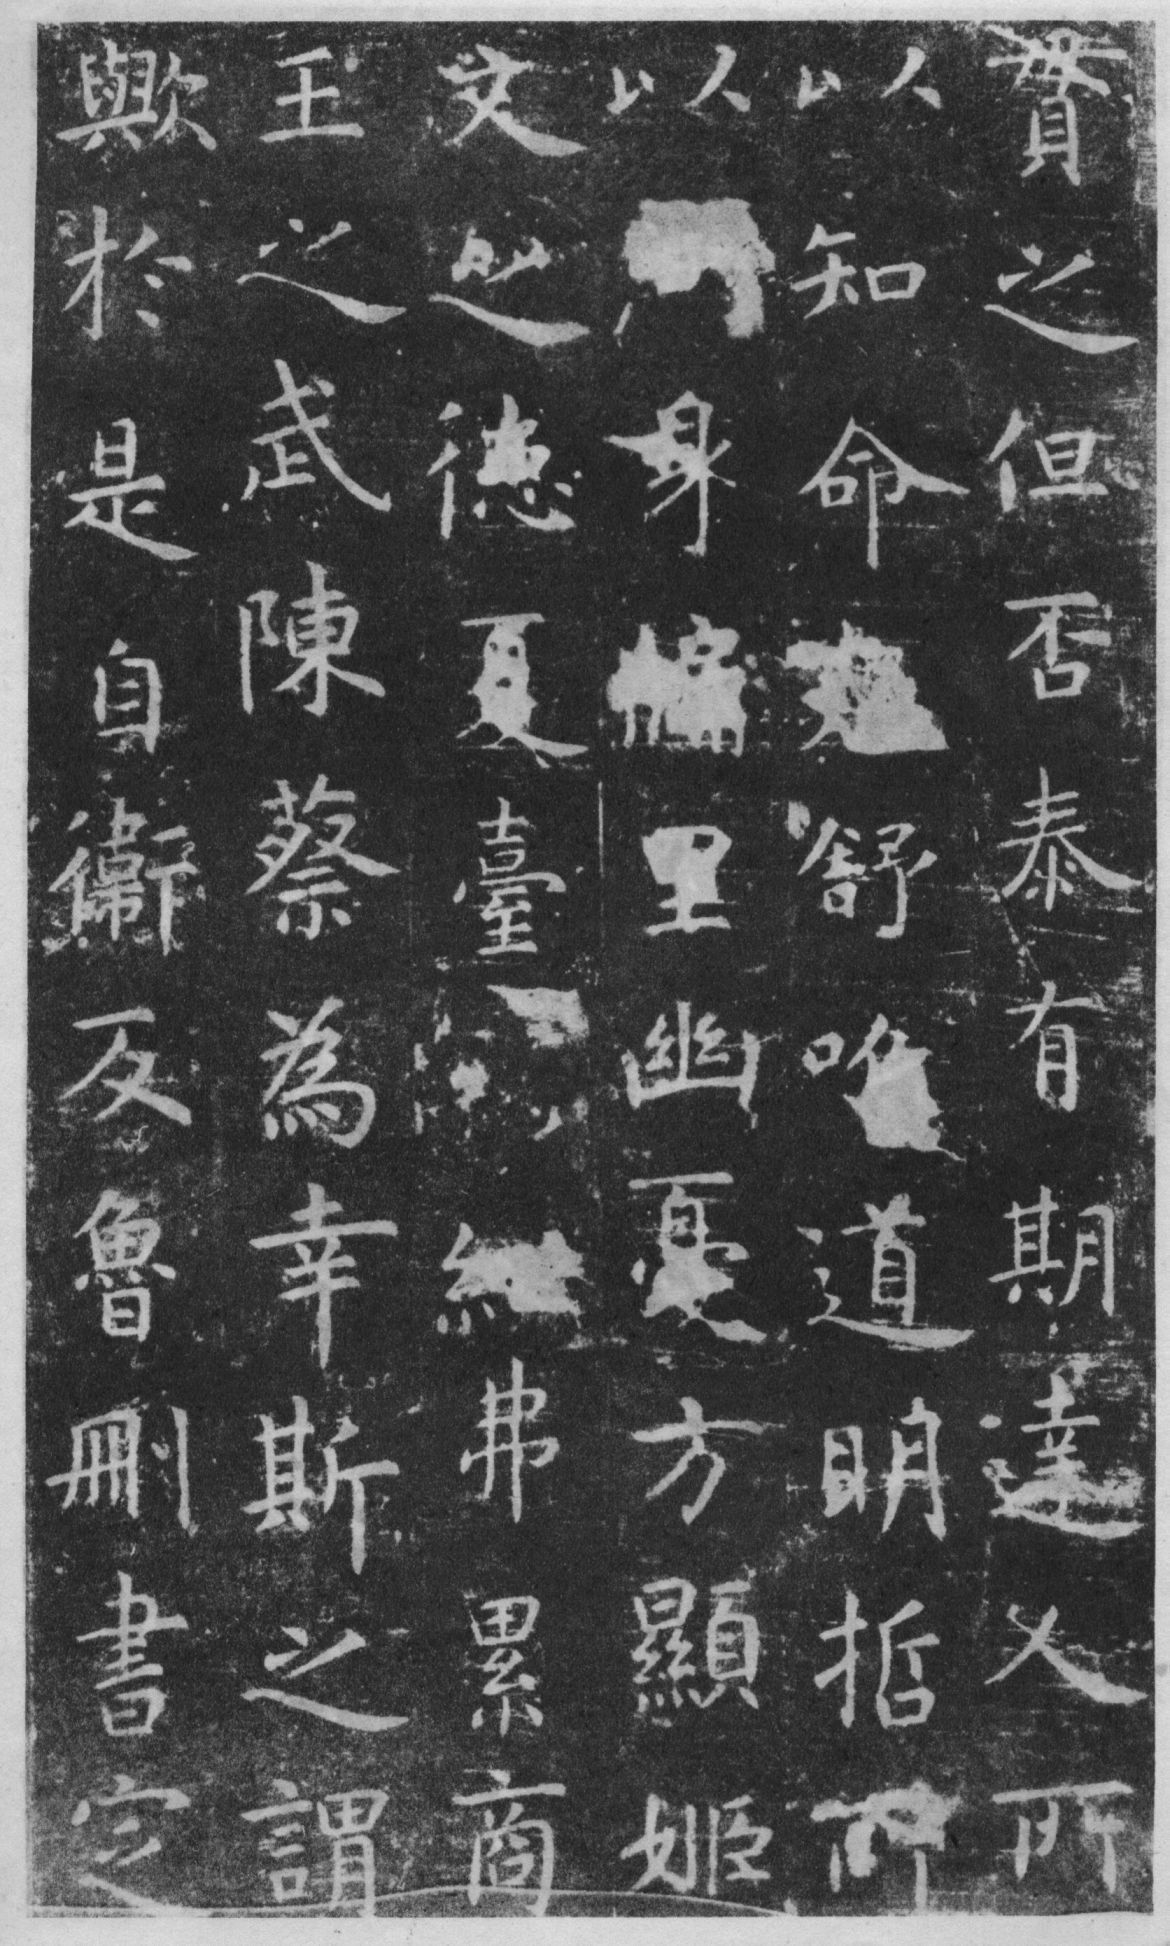 實之但否泰有期達人所
以知命卷舒唯道明哲所
以身牖里幽憂方顯姬
文之德夏臺弗累商
王之武陳蔡為幸斯之謂
歟於是自衛反魯刪書定